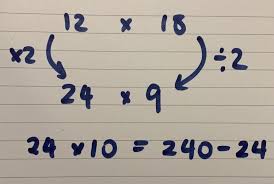 12 x 18
x2 ÷2
24 x 9
24 x10 = 240 - 24